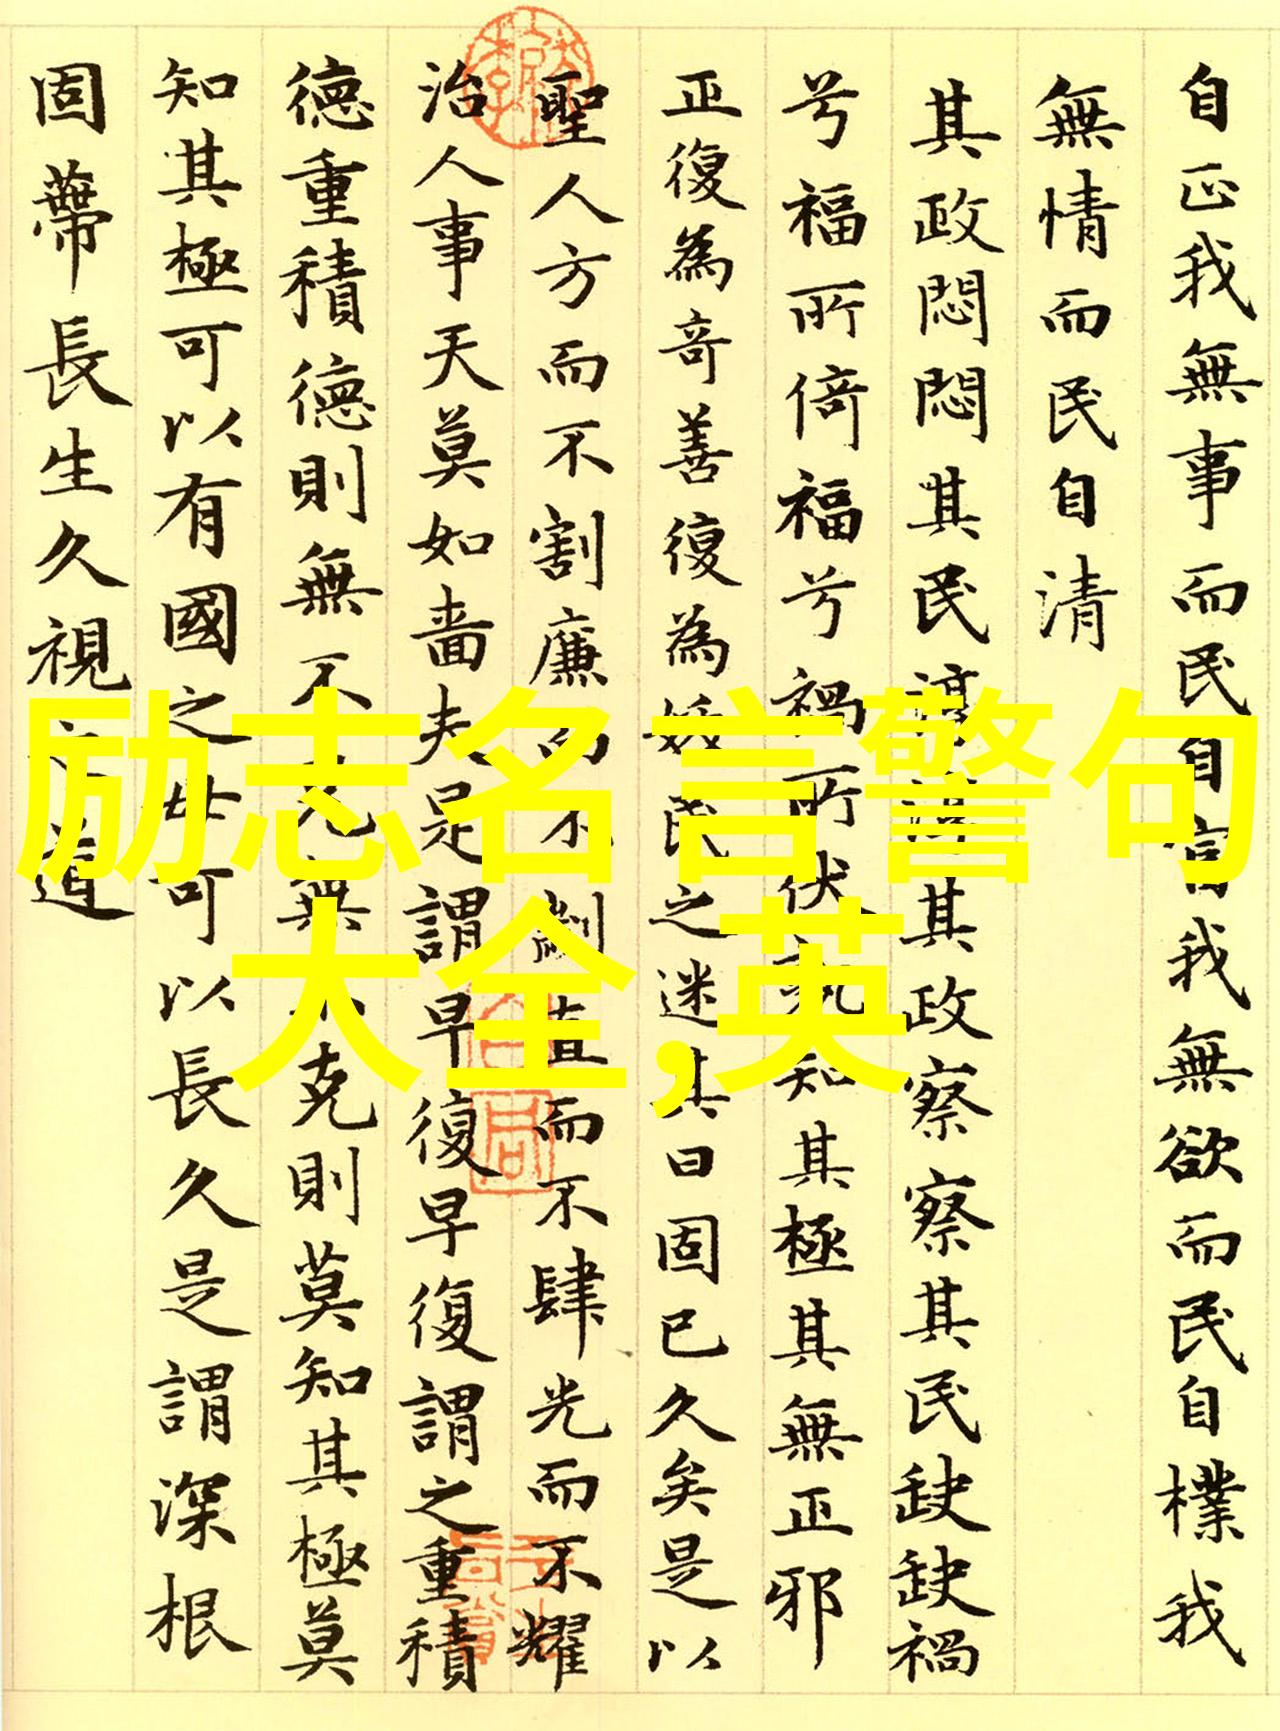 自正我無事而民自富我無欲而民自樸我
無情而民自清
其政悶悶其民淳淳其政察察其民缺缺禍
兮福所倚福兮禍所伏孰知其極其無正邪
正復為奇善復為妖民之迷其日固已久矣是以
聖人方而不割廉而不劌直而不肆光而不耀
治人事天莫如嗇夫是謂早復早復謂之重積
德重積德則無不克無不克則莫知其極莫
知其極可以有國有國之母可以長久是謂深根
固蔕長生久視之道
励志名言警句
大全,英